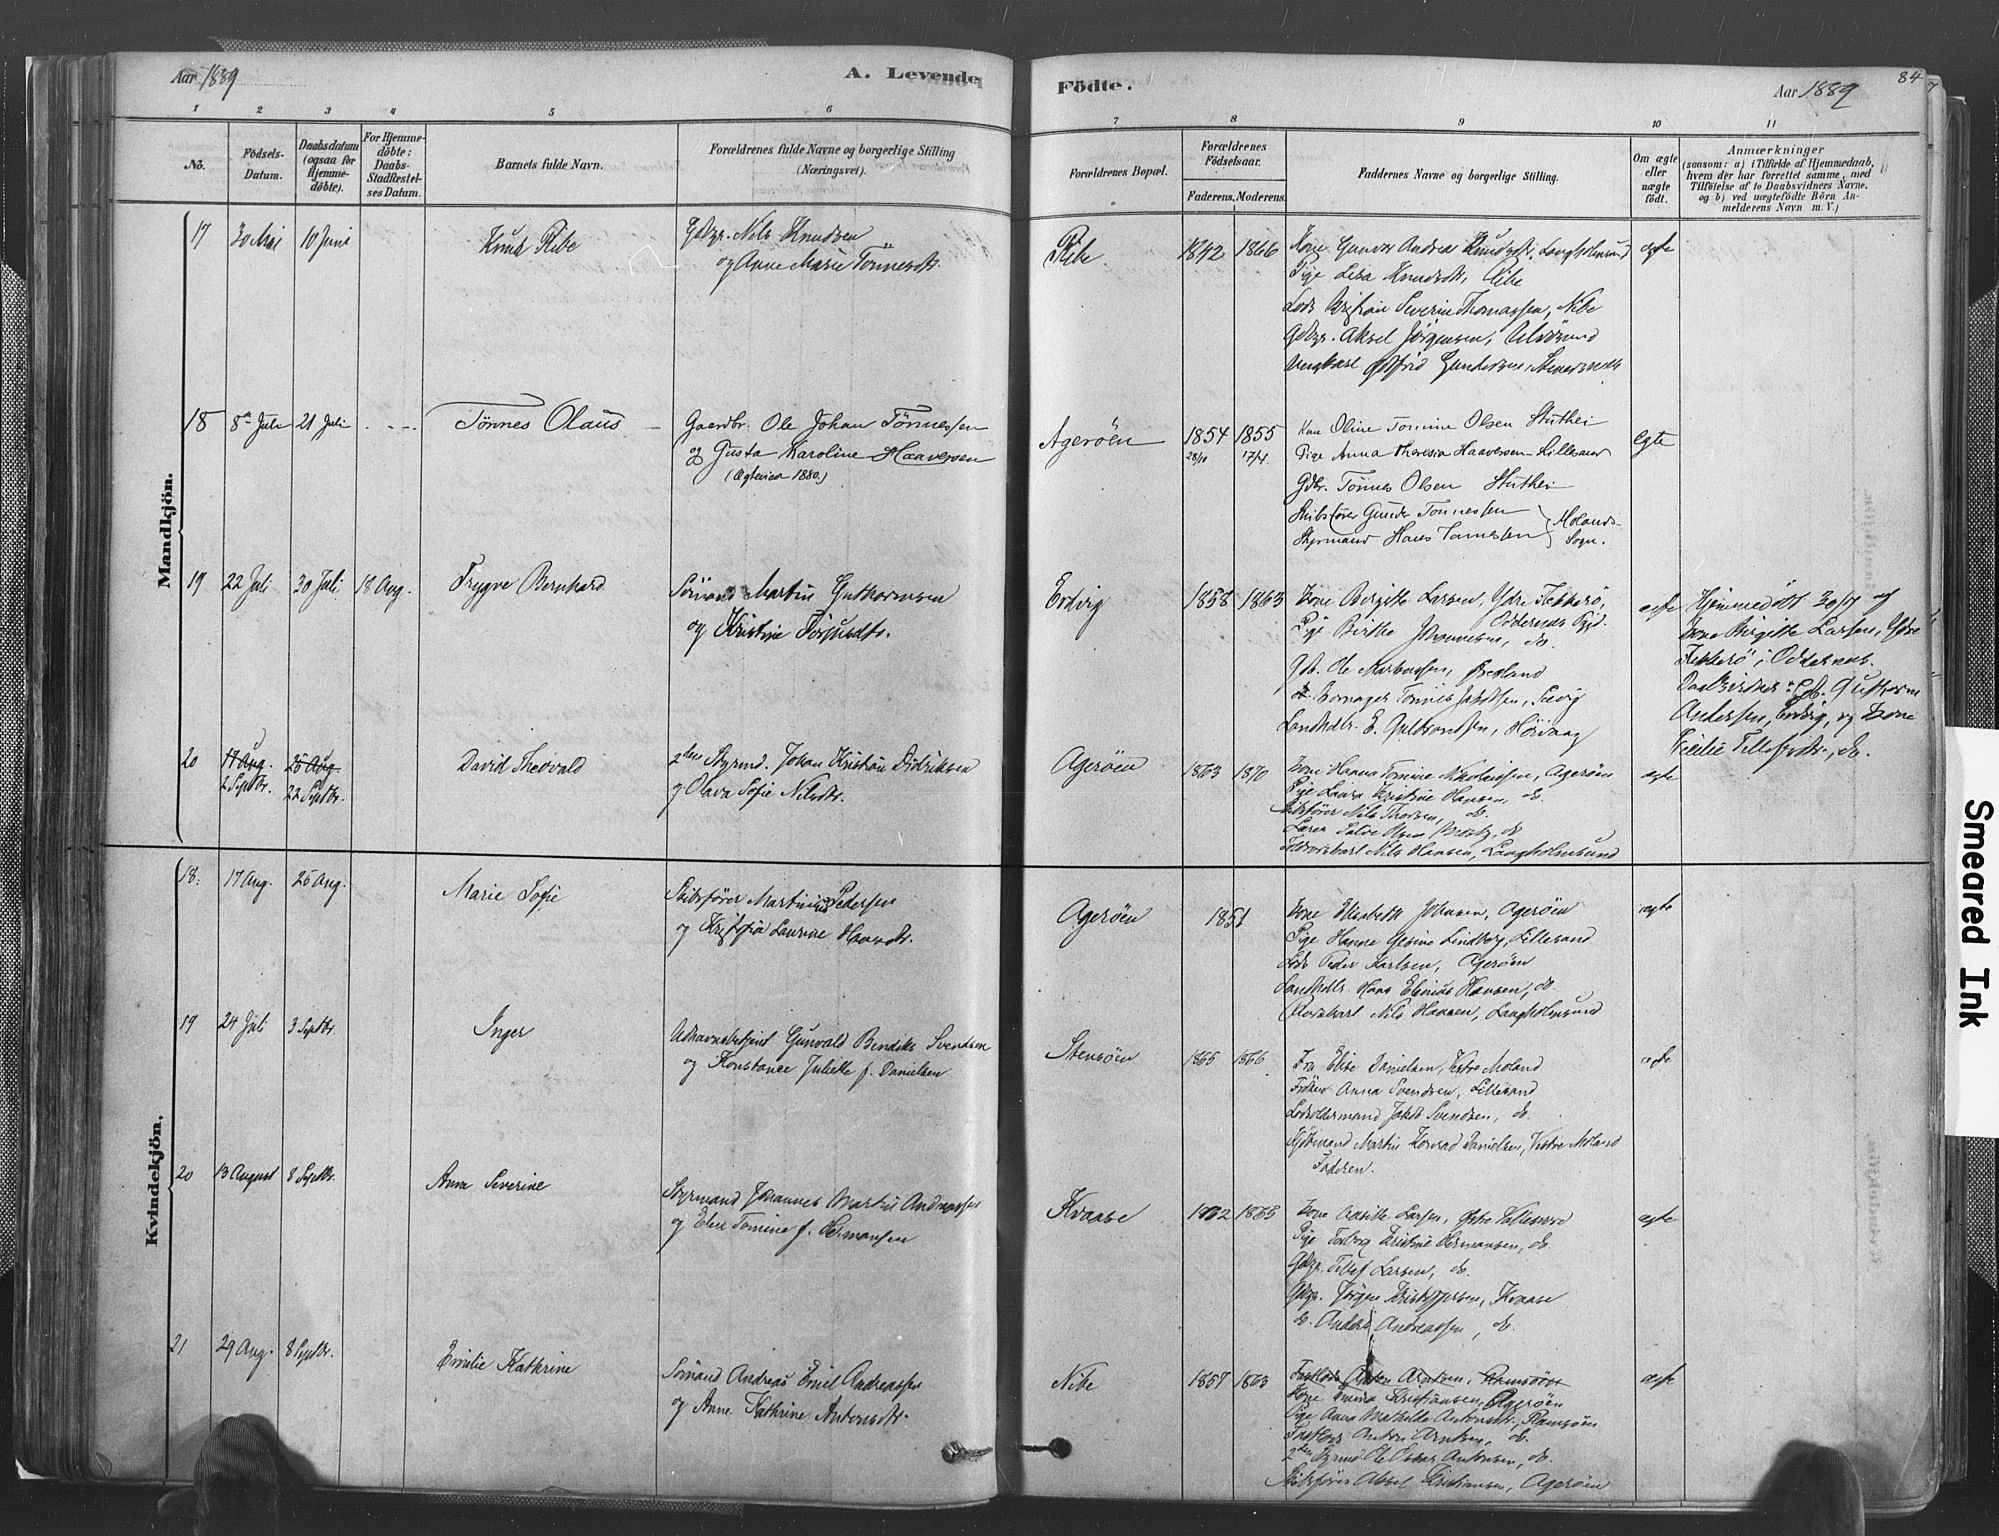 Aar 1889
A. Levende
Födte.
Aar 1889
84
1 2 3 4 5 6 7 8 9 10 11
No.
Födsels-
Datum.
Daabsdatum
(ogsaa for
Hjemme-
döbte).
For Hjemme-
döbte:
Daabs-
Stadfæstel-
ses Datum.
Barnets fulde Navn.
Forældrenes fulde Navne og borgerlige Stilling
(Næringsvei).
Forældrenes Bopæl.
Forældrenes
Födselsaar.
Faderens. Moderens.
Faddernes Navne og borgerlige Stilling.
Om ægte
eller
uægte
født.
Anmærkninger
(saasom: a) i Tilfælde af Hjemmedaab,
hvem der har forrettet samme, med
Tilföielse af to Daabsvidners Navne.
og b) ved uægtefödte Börn An-
melderens Navn m. V.)
Mandkjön.
17 30 Mai 10 Juni Knud Ribe
Gdbgr. Nils Knudsen
og Anne Marie Tönnesdtr.
Ribe 1842 1866
Kone Gunvor Andrea Knudsdtr. Langholmsund ægte
Pige Lisa Knudsdtr, Ribe
Lods Kristian Severin Thomassen, Nibe
Gdbgr. Aksel Jörgensen, Ulvösund
Ungkarl Gotfrid Gundersen,
18 8de Juli 21 Juli Tönnes Olaus
Gaardbr. Ole Johan Tönnessen
og Gusta Karoline Haaversen
(Ægteviet 1880.)
Agerøen 1854 1855
28/10 17/4.
Kone Oline Tomine Olsen Stuthei
Pige Anna Theresia Haaversen Lillesand
Gdbr. Tönnes Olsen Stuthei
Skibsfører Gunder Tönnessen
Styrmand Hans Tönnessen
Molands-
Sogn.
Egte
19 22 Juli 30 Juli 18 Aug. Trygve Bernhard
Sömand Martin Guthormsen
og Kristine Torjusdtr.
Eidvig 1858 1863
Kone Birgitte Larsen, Ydre Flekkerö,
Oddernes Pgd.
Pige Birthe Johannesen, do.
Gdb. Ole Markussen, Øvreland
Landhdlr. E. Guldbrandsen, Hövaag
ægte
Hjemmedöbt 30/7 af
Kone Birgitte Larsen, Ydre
Flekkerö i Oddernes.
Daabsvidner: Gb. Guthorm
Andersen, Eidvig, og Kone
Tellefsdtr., do.
20 17 Aug. 25 Aug. David Theovald
2 Septbr. 22 Septbr.
2den Styrmd. Johan Kristian Didriksen
og Olava Sofie Nilsdtr.
Agerøen 1863 1870
Kone Hanna Tomine Nikolaissen, Agerøen
Pige Laura Kristine Hansen, do.
Skibsfører Nils Thorsen, do.
Toldroerskarl Nils Hansen, Langholmsund
ægte
Kvindekjön.
18. 17 Aug. 25 Aug. Marie Sofie
Skibsfører Martinius Pedersen
og Kristofia Laurine Haavdtr.
Agerøen 1851
Kone Elisabeth Johnsen, Agerøen
Pige Hanne Gesine Lindberg, Lillesand
Lods Peder Karlsen, Agerøen
Landhdlr. Hans Elenius Hansen, do.
Roerskarl Nils Hansen, Langholmsund
ægte
19 24 Juli 3 Septbr. Inger
Gunvald Bendiks Svendsen
og Konstance Juliette f. Danielsen
Stensöen 1865 1866
Fru Elise Danielsen, Vestre Moland
Fröken Anna Svendsen, Lillesand
Lodsoldermand Jakob Svendsen, do.
Kjöbmand Martin Konrad Danielsen, Vestre Moland
Faderen.
ægte
20 13 August 8 Septbr. Anne Severine
Styrmand Johannes Martin Andreassen
og Elen Tomine f. Hermansen
Kvaase 1862 1865
Kone Aasille Larsen, Østre Vallesverd
Pige Torborg Kristine Hermansen, do.
Gdbgr. Tellef Larsen, do.
Gdbgr. Jörgen Kristoffersen, Kvaase
do. Anders Andreassen, do.
ægte
21 29 Aug. 8 Septbr. Emilie Kathrine
Sömand Andreas Emil Andreassen
og Anne Kathrine Antonsdtr.
Nibe 1857 1863
Fastlods Anton Arntsen, Ramsöen
Kone Tomine Kristiansen, Agerøen
Pige Anna Mathilde Antonsdtr, Ramsöen
Fastlods Anton Arntsen, do.
2den Styrmd. Ole Oskar Antonsen, do.
Skibsfører Aksel Kristiansen, Agerøen
ægte
Smeared Ink